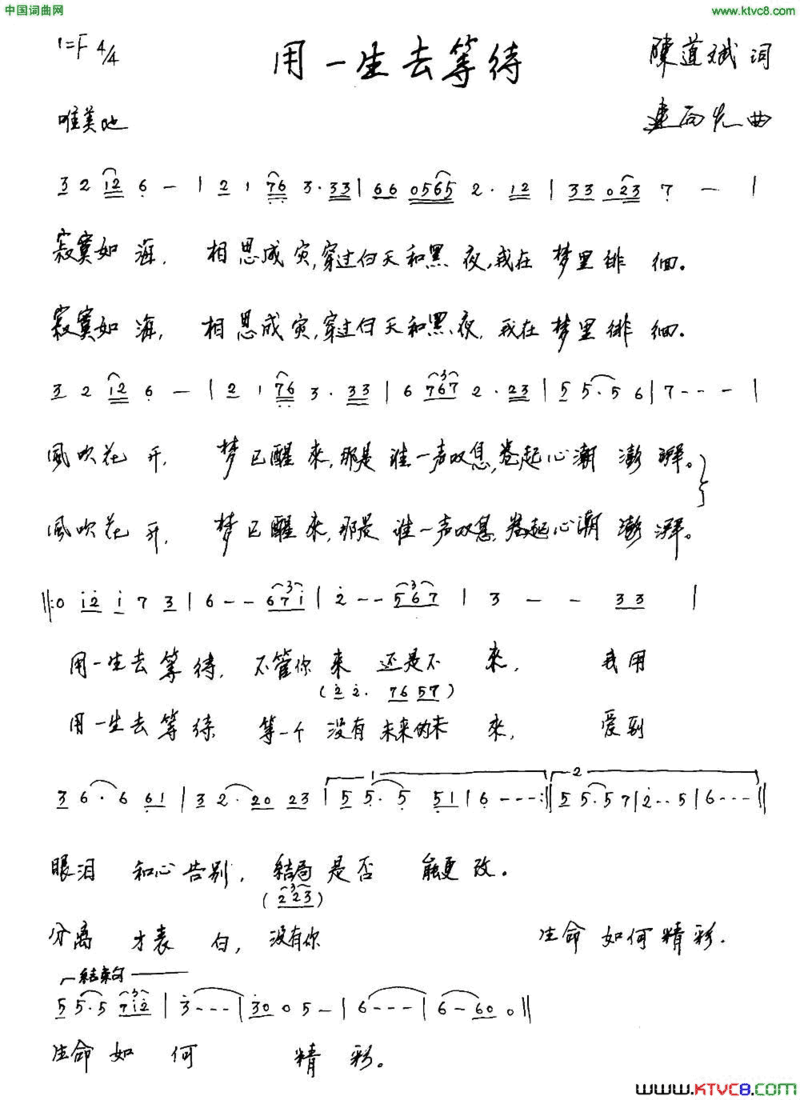 中国词曲网
www.ktvc8.com
1=F 4/4
用一生去等待
陳道斌 词
唯美地
曲
3 2 12 6 - | 2 1 76 3·33 | 66 0565 2·12 | 33 023 7 - |
寂寞如海，相思成灾，穿过白天和黑夜，我在梦里徘徊。
寂寞如海，相思成灾，穿过白天和黑夜，我在梦里徘徊。
3 2 12 6 - | 2 1 76 3·33 | 6 767 2·23 | 5 5·56 | 7--- |
風吹花开，梦已醒来，那是谁一声叹息，卷起心潮澎湃。
風吹花开，梦已醒来，那是谁一声叹息，卷起心潮澎湃。
||:0 12 1 7 3 | 6 - - 671 | 2 - - 567 | 3 - - 33 |
用一生去等待，不管你来还是不来，我用
(2 2· 76 57)
用一生去等待 等一个没有未来的未来，爱到
3 6·6 61 | 3 2·20 23 | 1 5 5·5 51 | 6---:|| 2 5 5·57 | 2··5 | 6---||
眼泪和心告别，结局是否能更改。
(223)
分离才表白，没有你 生命如何精彩.
结束句
5 5·5 712 | 3--- | 30 0 5- | 6--- | 6-60 0 ||
生命如何精彩。
www.KTVC8.com